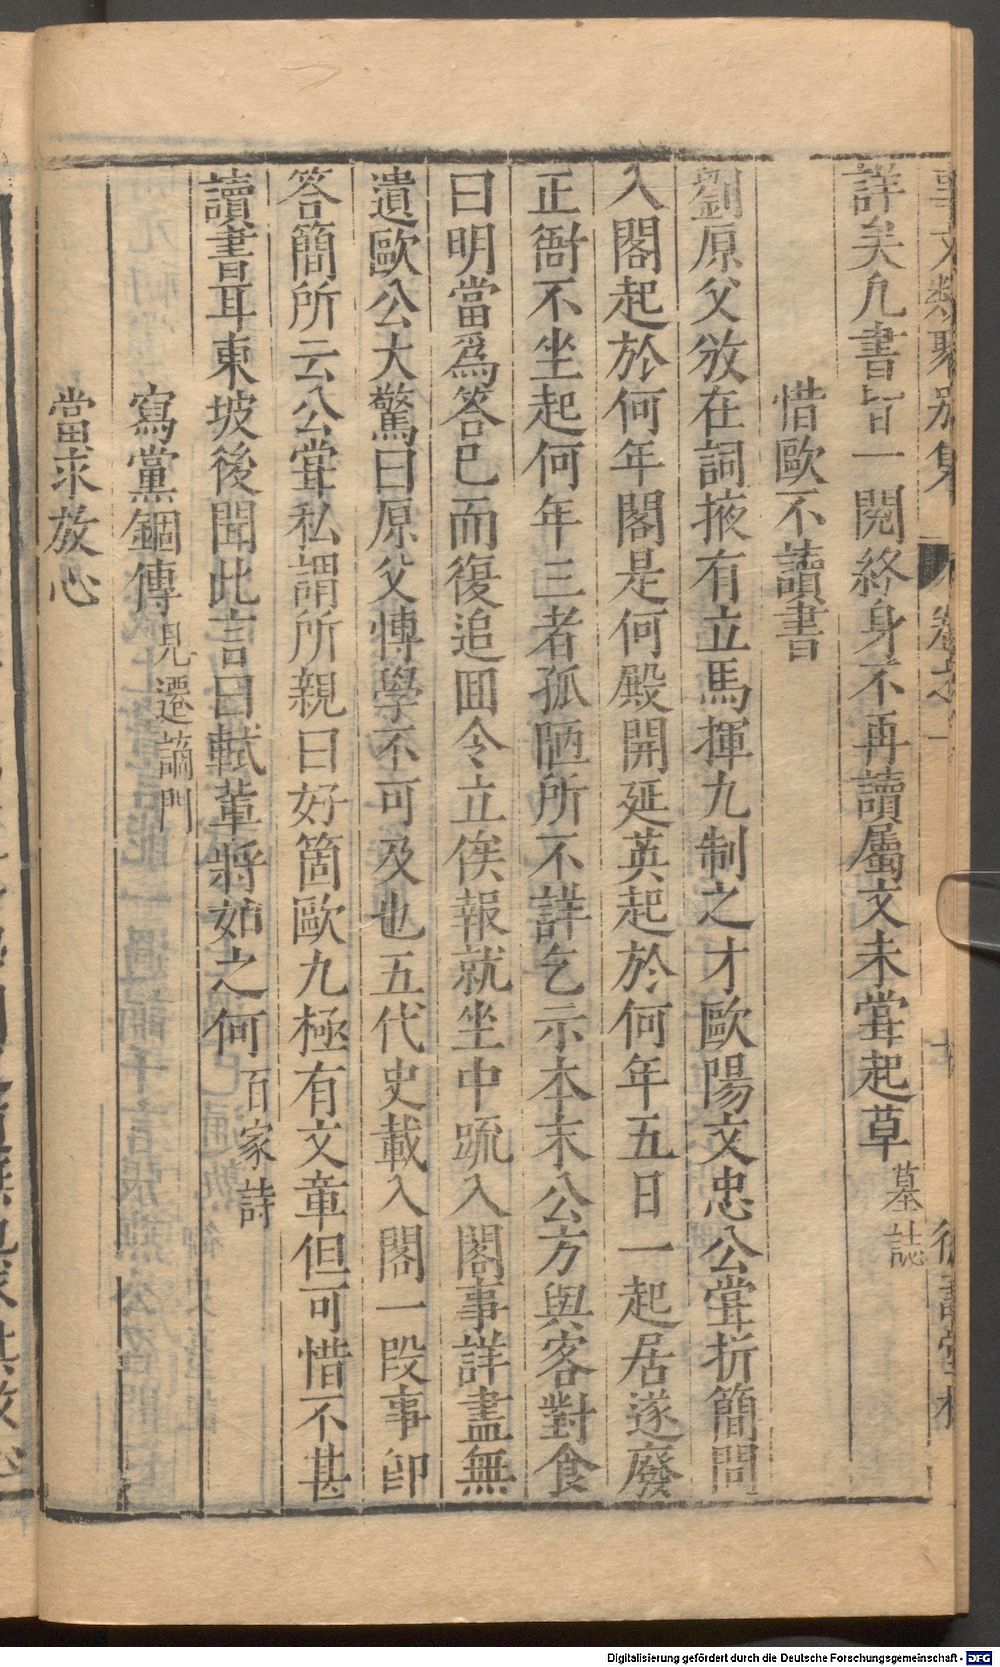 事文類聚別集
詳矣凢書皆一閱終身不再讀屬文未甞起草墓誌
惜歐不讀書
劉原父攽在詞掖有立馬揮九制之才歐陽文忠公甞折簡問
入閣起於何年閣是何殿開延英起於何年五日一起居遂廢
正衙不坐起何年三者孤陋所不詳乞示本末公方與客對食
曰明當爲答已而復追囬令立俟報就坐中疏入閣事詳盡無
遺歐公大驚曰原父愽學不可及也五代史載入閣一段事卽
答簡所云公甞私謂所親曰好箇歐九極有文章但可惜不甚
讀書耳東坡後聞此言曰軾輩將如之何百家詩
寫黨錮傳見遷謫門
當求放心
Digitalisierung gefördert durch die Deutsche Forschungsgemeinschaft - DFG